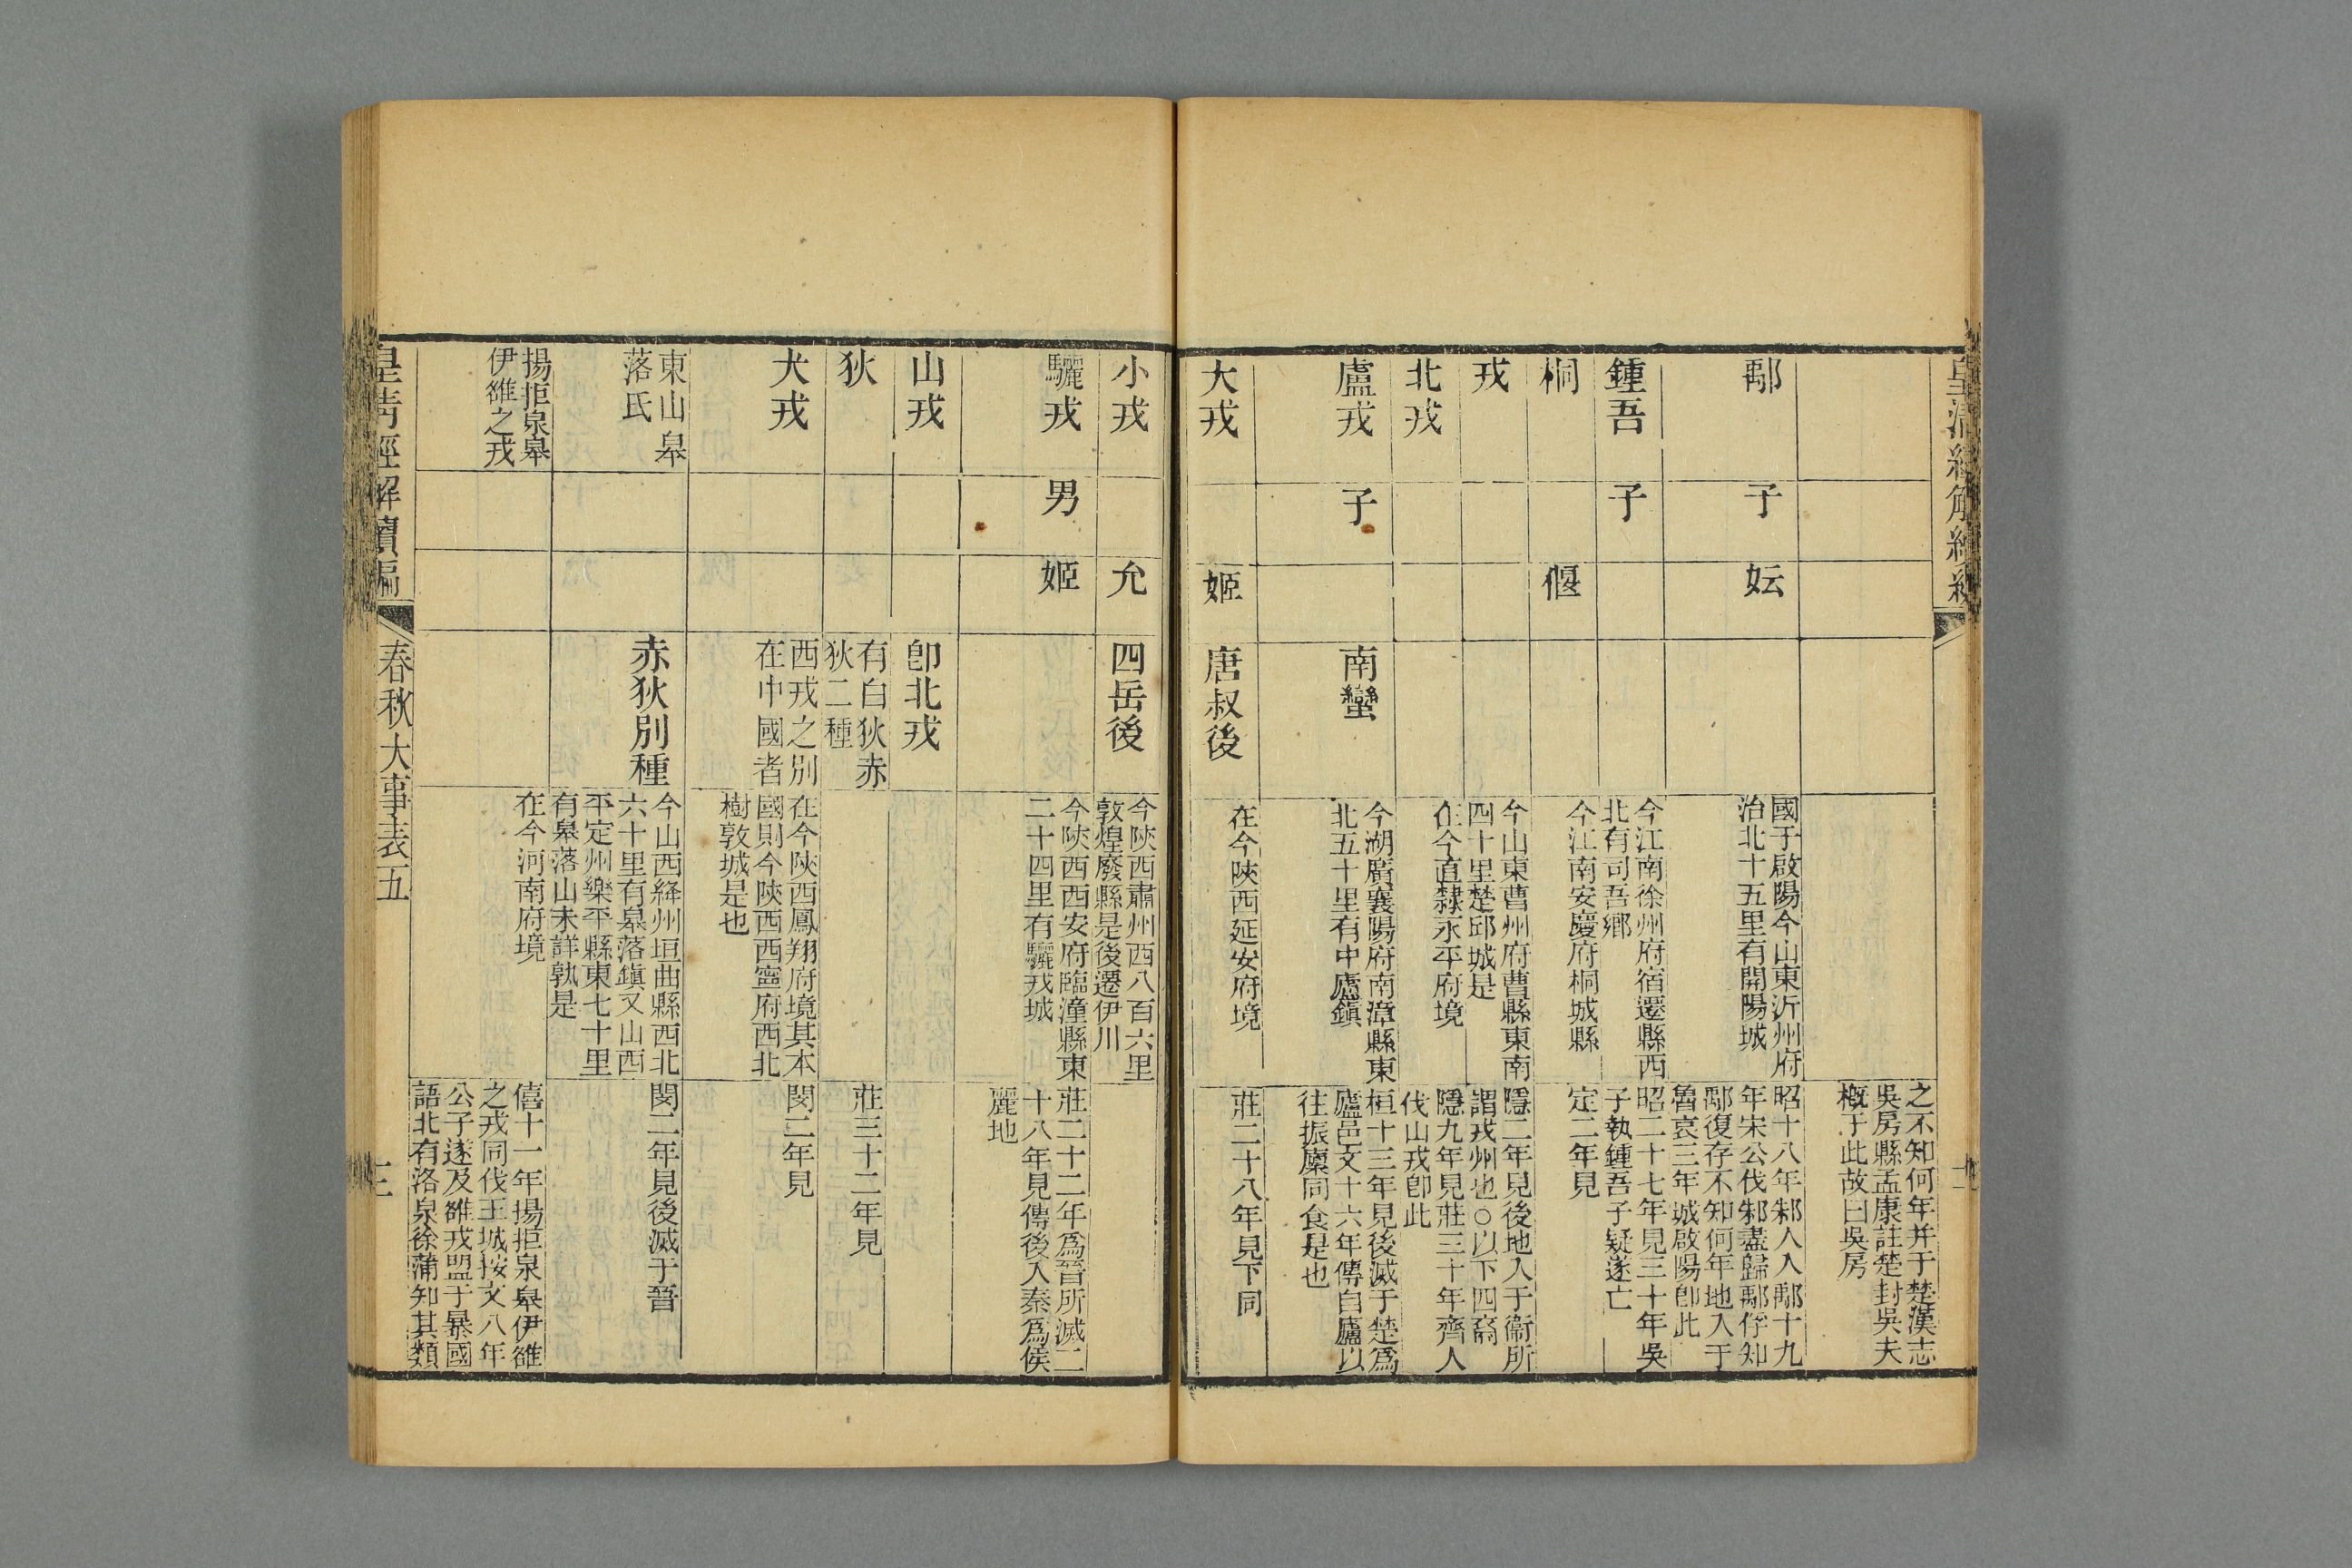 之不知何年并于楚漢志
吳房縣孟康註楚封吳夫
槪于此故曰吳房
鄅
子
妘
國于啟陽今山東沂州府
治北十五里有開陽城
昭十八年邾人入鄅十九
年宋公伐邾盡歸鄅俘知
鄅復存不知何年地入于
魯哀三年城啟陽卽此
鍾吾
子
今江南徐州府宿遷縣西
北有司吾鄉
昭二十七年見三十年吳
子執鍾吾子疑遂亡
桐
偃
今江南安慶府桐城縣
定二年見
戎
今山東曹州府曹縣東南
四十里楚邱城是
隱二年見後地入于衞所
謂戎州也○以下四裔
北戎
在今直隸永平府境
隱九年見莊三十年齊人
伐山戎卽此
盧戎
子
南蠻
今湖廣襄陽府南漳縣東
北五十里有中廬鎭
桓十三年見後滅于楚爲
廬邑文十六年傳自廬以
往振廩同食是也
大戎
姬
唐叔後
在今陝西延安府境
莊二十八年見下同
小戎
允
四岳後
今陝西肅州西八百六里
敦煌廢縣是後遷伊川
驪戎
男
姬
今陝西西安府臨潼縣東
二十四里有驪戎城
莊二十二年爲晉所滅二
十八年見傳後入秦爲侯
麗地
山戎
卽北戎
狄
有白狄赤
狄二種
莊三十二年見
犬戎
西戎之別
在中國者
在今陝西鳳翔府境其本
國則今陝西西寧府西北
樹敦城是也
閔二年見
東山皋
落氏
赤狄別種
今山西絳州垣曲縣西北
六十里有皋落鎭又山西
平定州樂平縣東七十里
有皋落山未詳孰是
閔二年見後滅于晉
揚拒泉皋
伊雒之戎
在今河南府境
僖十一年揚拒泉皋伊雒
之戎同伐王城按文八年
公子遂及雒戎盟于暴國
語北有洛泉徐蒲知其類
皇淸經解續編
春秋大事表五